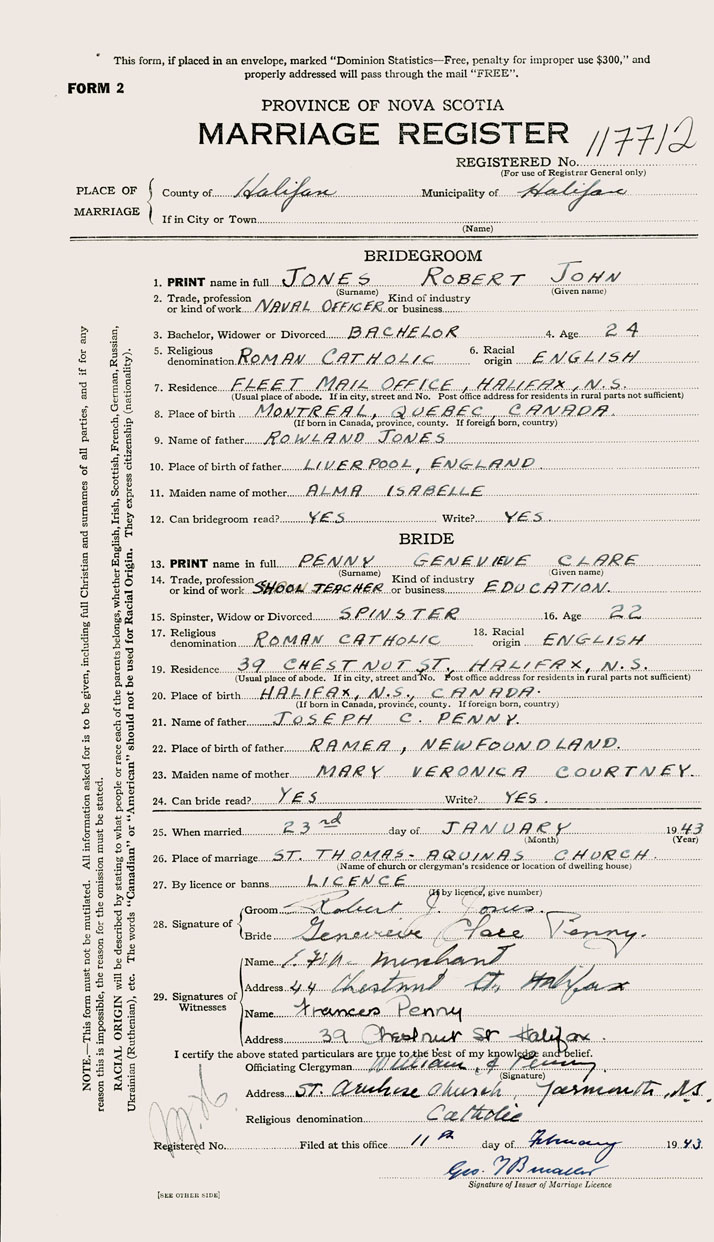 This form, if placed in an envelope, marked "Dominion Statistics—Free, penalty for improper use $300," and
properly addressed will pass through the mail "FREE".
FORM 2
PROVINCE OF NOVA SCOTIA
MARRIAGE REGISTER
REGISTERED No. 117712
(For use of Registrar General only)
PLACE OF MARRIAGE
County of Halifax Municipality of Halifax
If in City or Town
(Name)
BRIDEGROOM
1. PRINT name in full JONES ROBERT JOHN
(Surname) (Given name)
2. Trade, profession or kind of work NAVAL OFFICER Kind of industry or business
3. Bachelor, Widower or Divorced BACHELOR 4. Age 24
5. Religious denomination ROMAN CATHOLIC 6. Racial origin ENGLISH
7. Residence FLEET MAIL OFFICE, HALIFAX, N.S.
(Usual place of abode. If in city, street and No. Post office address for residents in rural parts not sufficient)
8. Place of birth MONTREAL, QUEBEC, CANADA.
(If born in Canada, province, county. If foreign born, country)
9. Name of father ROWLAND JONES
10. Place of birth of father LIVERPOOL, ENGLAND.
11. Maiden name of mother ALMA ISABELLE
12. Can bridegroom read? YES Write? YES.
BRIDE
13. PRINT name in full PENNY GENEVIEVE CLARE
(Surname) (Given name)
14. Trade, profession or kind of work SHOOL TEACHER Kind of industry or business EDUCATION.
15. Spinster, Widow or Divorced SPINSTER 16. Age 22
17. Religious denomination ROMAN CATHOLIC 18. Racial origin ENGLISH
19. Residence 39 CHESTNUT ST., HALIFAX, N.S.
(Usual place of abode. If in city, street and No. Post office address for residents in rural parts not sufficient)
20. Place of birth HALIFAX, N.S., CANADA.
(If born in Canada, province, county. If foreign born, country)
21. Name of father JOSEPH C. PENNY.
22. Place of birth of father RAMEA, NEWFOUNDLAND.
23. Maiden name of mother MARY VERONICA COURTNEY.
24. Can bride read? YES Write? YES.
25. When married 23rd day of JANUARY 1943
(Month) (Year)
26. Place of marriage ST. THOMAS-AQUINAS CHURCH.
(Name of church or clergyman's residence or location of dwelling house)
27. By licence or banns LICENCE
(If by licence, give number)
28. Signature of
Groom Robert J. Jones.
Bride Genevieve Clare Penny.
29. Signatures of Witnesses
Name Merchant
Address 44 Chestnut St. Halifax
Name Frances Penny
Address 39 Chestnut St Halifax.
I certify the above stated particulars are true to the best of my knowledge and belief.
Officiating Clergyman William J Penny
(Signature)
Address St. Ambrose Church, Yarmouth, N.S.
Religious denomination Catholic
Registered No. Filed at this office 11th day of February 1943
Geo.
Signature of Issuer of Marriage Licence
[SEE OTHER SIDE]
NOTE.—This form must not be mutilated. All information asked for is to be given, including full Christian and surnames of all parties, and if for any
reason this is impossible, the reason for the omission must be stated.
RACIAL ORIGIN will be described by stating to what people or race each of the parents belongs, whether English, Irish, Scottish, French, German, Russian,
Ukrainian (Ruthenian), etc. The words "Canadian" or "American" should not be used for Racial Origin. They express citizenship (nationality).